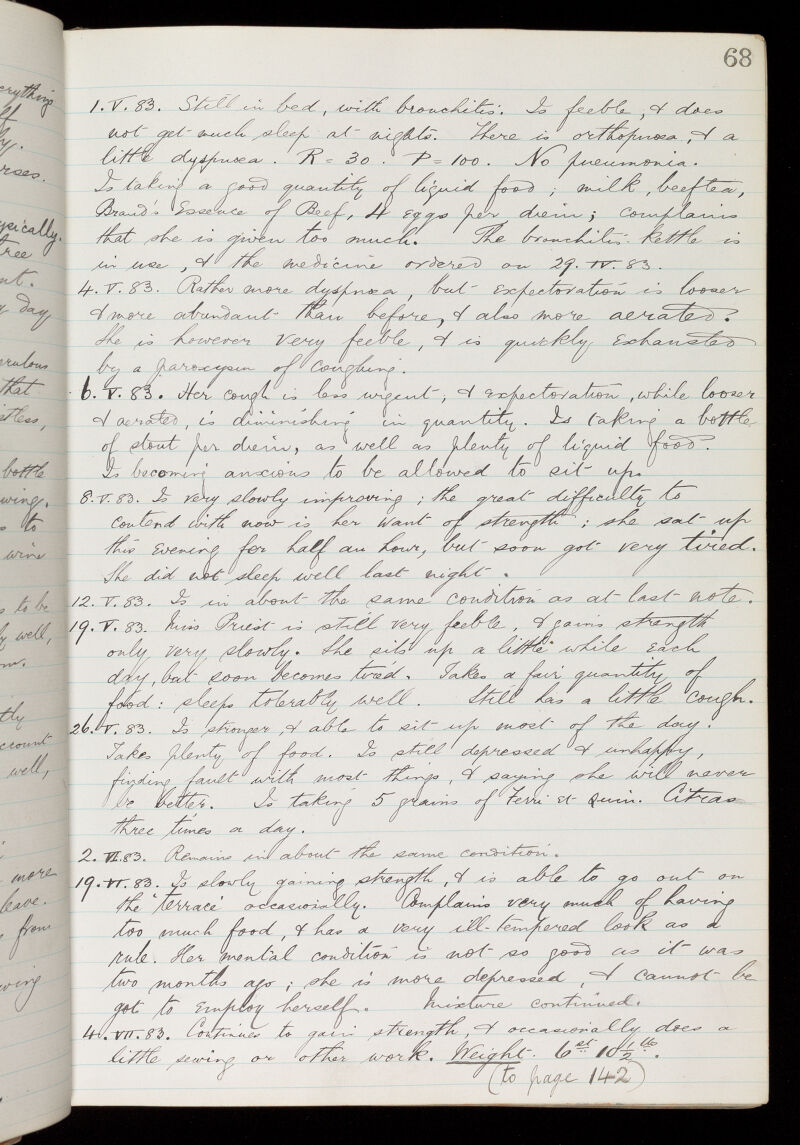 68
1. V. 83. Still in bed, with bronchitis. Is feeble, & does
not get much sleep at nights. There is orthopnoea, & a
little dyspnoea. R = 30. P = 100. No pneumonia.
Is taking a good quantity of liquid food; milk, beef tea,
Brand's Essence of Beef, 4 eggs per diem; complains
that she is given too much. The bronchitis kettle is
in use, & the medicine ordered on 29. IV. 83.
4. V. 83. Rather more dyspnoea, but expectoration is looser
& more abundant than before, & also more aerated.
She is however very feeble, & is quickly exhausted
by a paroxysm of coughing.
6. V. 83. Her cough is less urgent, & expectoration, while looser
& aerated, is diminishing in quantity. Is taking a bottle
of stout per diem, as well as plenty of liquid food.
Is becoming anxious to be allowed to sit up.
8. V. 83. Is very slowly improving; the great difficulty to
contend with now is her want of strength; she sat up
this evening for half an hour, but soon got very tired.
She did not sleep well last night.
12. V. 83. Is in about the same condition as at last note.
19. V. 83. Miss Priest is still very feeble, & gains strength
only very slowly. She sits up a little while each
day, but soon becomes tired. Takes a fair quantity of
food: sleeps tolerably well. Still has a little cough.
26. V. 83. Is stronger, & able to sit up most of the day.
Takes plenty of food. Is still depressed & unhappy,
finding fault with most things, & saying she will never
be better. Is taking 5 grains of Ferri et Quin. Citras
three times a day.
2. VI. 83. Remains in about the same condition.
19. VI. 83. Is slowly gaining strength, & is able to go out on
the 'terrace' occasionally. Complains very much of having
too much food, & has a very ill-tempered look as a
rule. Her mental condition is not so good as it was
two months ago; she is more depressed, & cannot be
got to employ herself. Mixture continued.
4. VII. 83. Continues to gain strength, & occasionally does a
little sewing or other work. Weight. 6st 10½lb.
(to page 142)
erything
lf
ly.
rses.
ysically.
tree
nt.
y day
erulous
that
stless,
bottle
wing.
s to
wine
s to be
ly well,
m.
tly
ccount
well,
more
leave.
from
wing